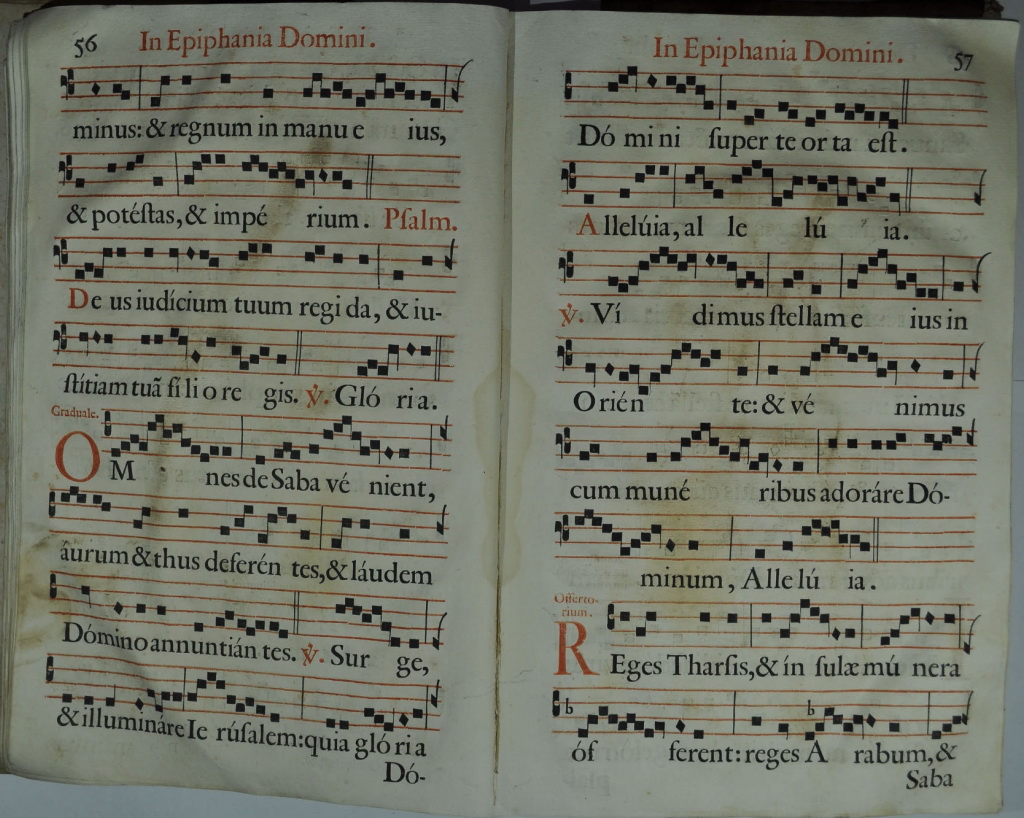 56 In Epiphania Domini.
minus: & regnum in manu e ius,
& potéſtas, & impé rium. Pſalm.
De us iudícium tuum regi da, & iu-
ſtítiam tuã fí li o re gis. ℣. Gló ri a.
Graduale.
OM nes de Saba vé nient,
áurum & thus deferén tes, & láudem
Dómino annuntián tes. ℣. Sur ge,
& illumináre Ie rúſalem: quia gló ri a
Dó-
In Epiphania Domini. 57
Dó mi ni ſuper te or ta eſt.
Allelúia, al le lú ia.
℣. Ví dimus ſtellam e ius in
Orién te: & vé nimus
cum muné ribus adoráre Dó-
minum, Alle lú ia.
Offerto-
rium.
REges Tharſis, & ín ſulæ mú nera
b b
óf ferent: reges A rabum, &
Saba